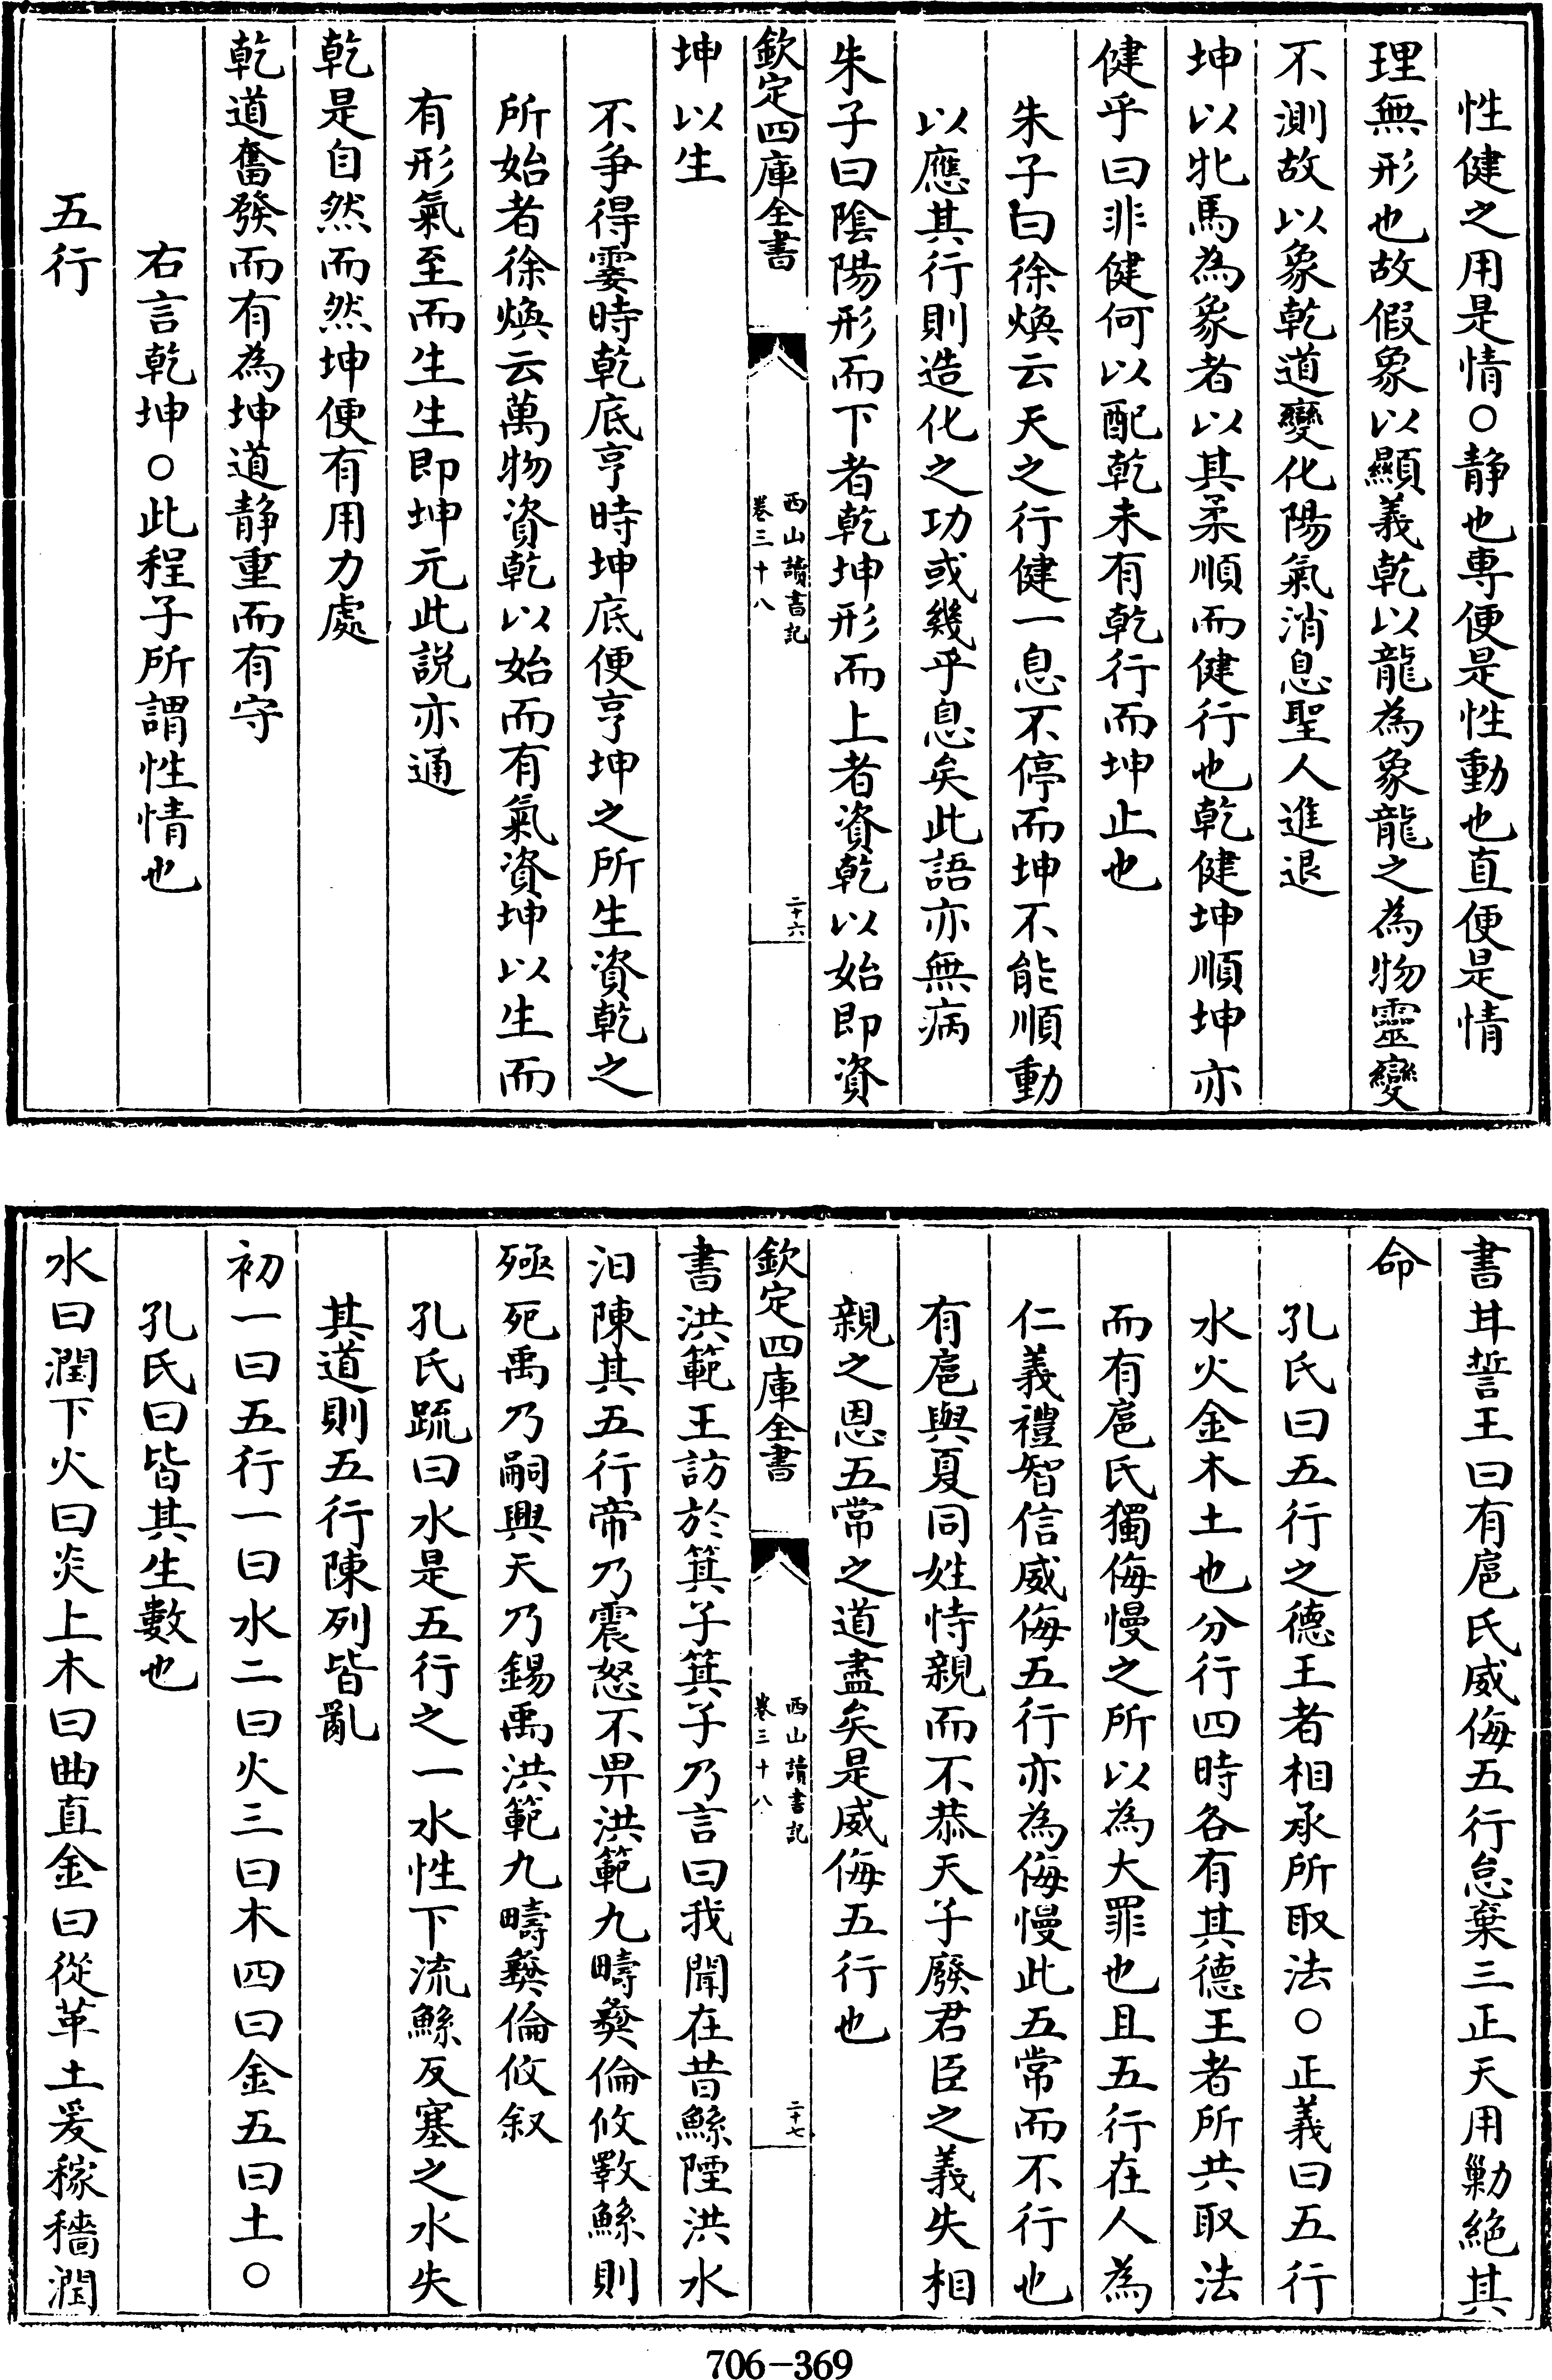 性健之用是情○静也専便是性動也直便是情
理無形也故假象以顯義乾以龍為象龍之為物靈變
不測故以象乾道變化陽氣消息聖人進退
坤以牝馬為象者以其柔順而健行也乾健坤順坤亦
健乎曰非健何以配乾未有乾行而坤止也
朱子曰徐煥云天之行健一息不停而坤不能順動
以應其行則造化之功或幾乎息矣此語亦無病
朱子曰陰陽形而下者乾坤形而上者資乾以始即資
欽定四庫全書
西山讀書記
卷三十八
二十六
坤以生
不争得霎時乾底亨時坤底便亨坤之所生資乾之
所始者徐煥云萬物資乾以始而有氣資坤以生而
有形氣至而生生即坤元此説亦通
乾是自然而然坤便有用力處
乾道奮發而有為坤道静重而有守
右言乾坤○此程子所謂性情也
五行
書甘誓王曰有扈氏威侮五行怠棄三正天用勦絶其
命
孔氏曰五行之德王者相承所取法○正義曰五行
水火金木土也分行四時各有其德王者所共取法
而有扈氏獨侮慢之所以為大罪也且五行在人為
仁義禮智信威侮五行亦為侮慢此五常而不行也
有扈與夏同姓恃親而不恭天子廢君臣之義失相
親之恩五常之道盡矣是威侮五行也
欽定四庫全書
西山讀書記
卷三十八
二十七
書洪範王訪於箕子箕子乃言曰我聞在昔鯀陻洪水
汩陳其五行帝乃震怒不畀洪範九疇彝倫攸斁鯀則
殛死禹乃嗣興天乃錫禹洪範九疇彝倫攸叙
孔氏䟽曰水是五行之一水性下流鯀反塞之水失
其道則五行陳列皆亂
初一曰五行一曰水二曰火三曰木四曰金五曰土○
孔氏曰皆其生數也
水曰潤下火曰炎上木曰曲直金曰從革土爰稼穡潤
706-369